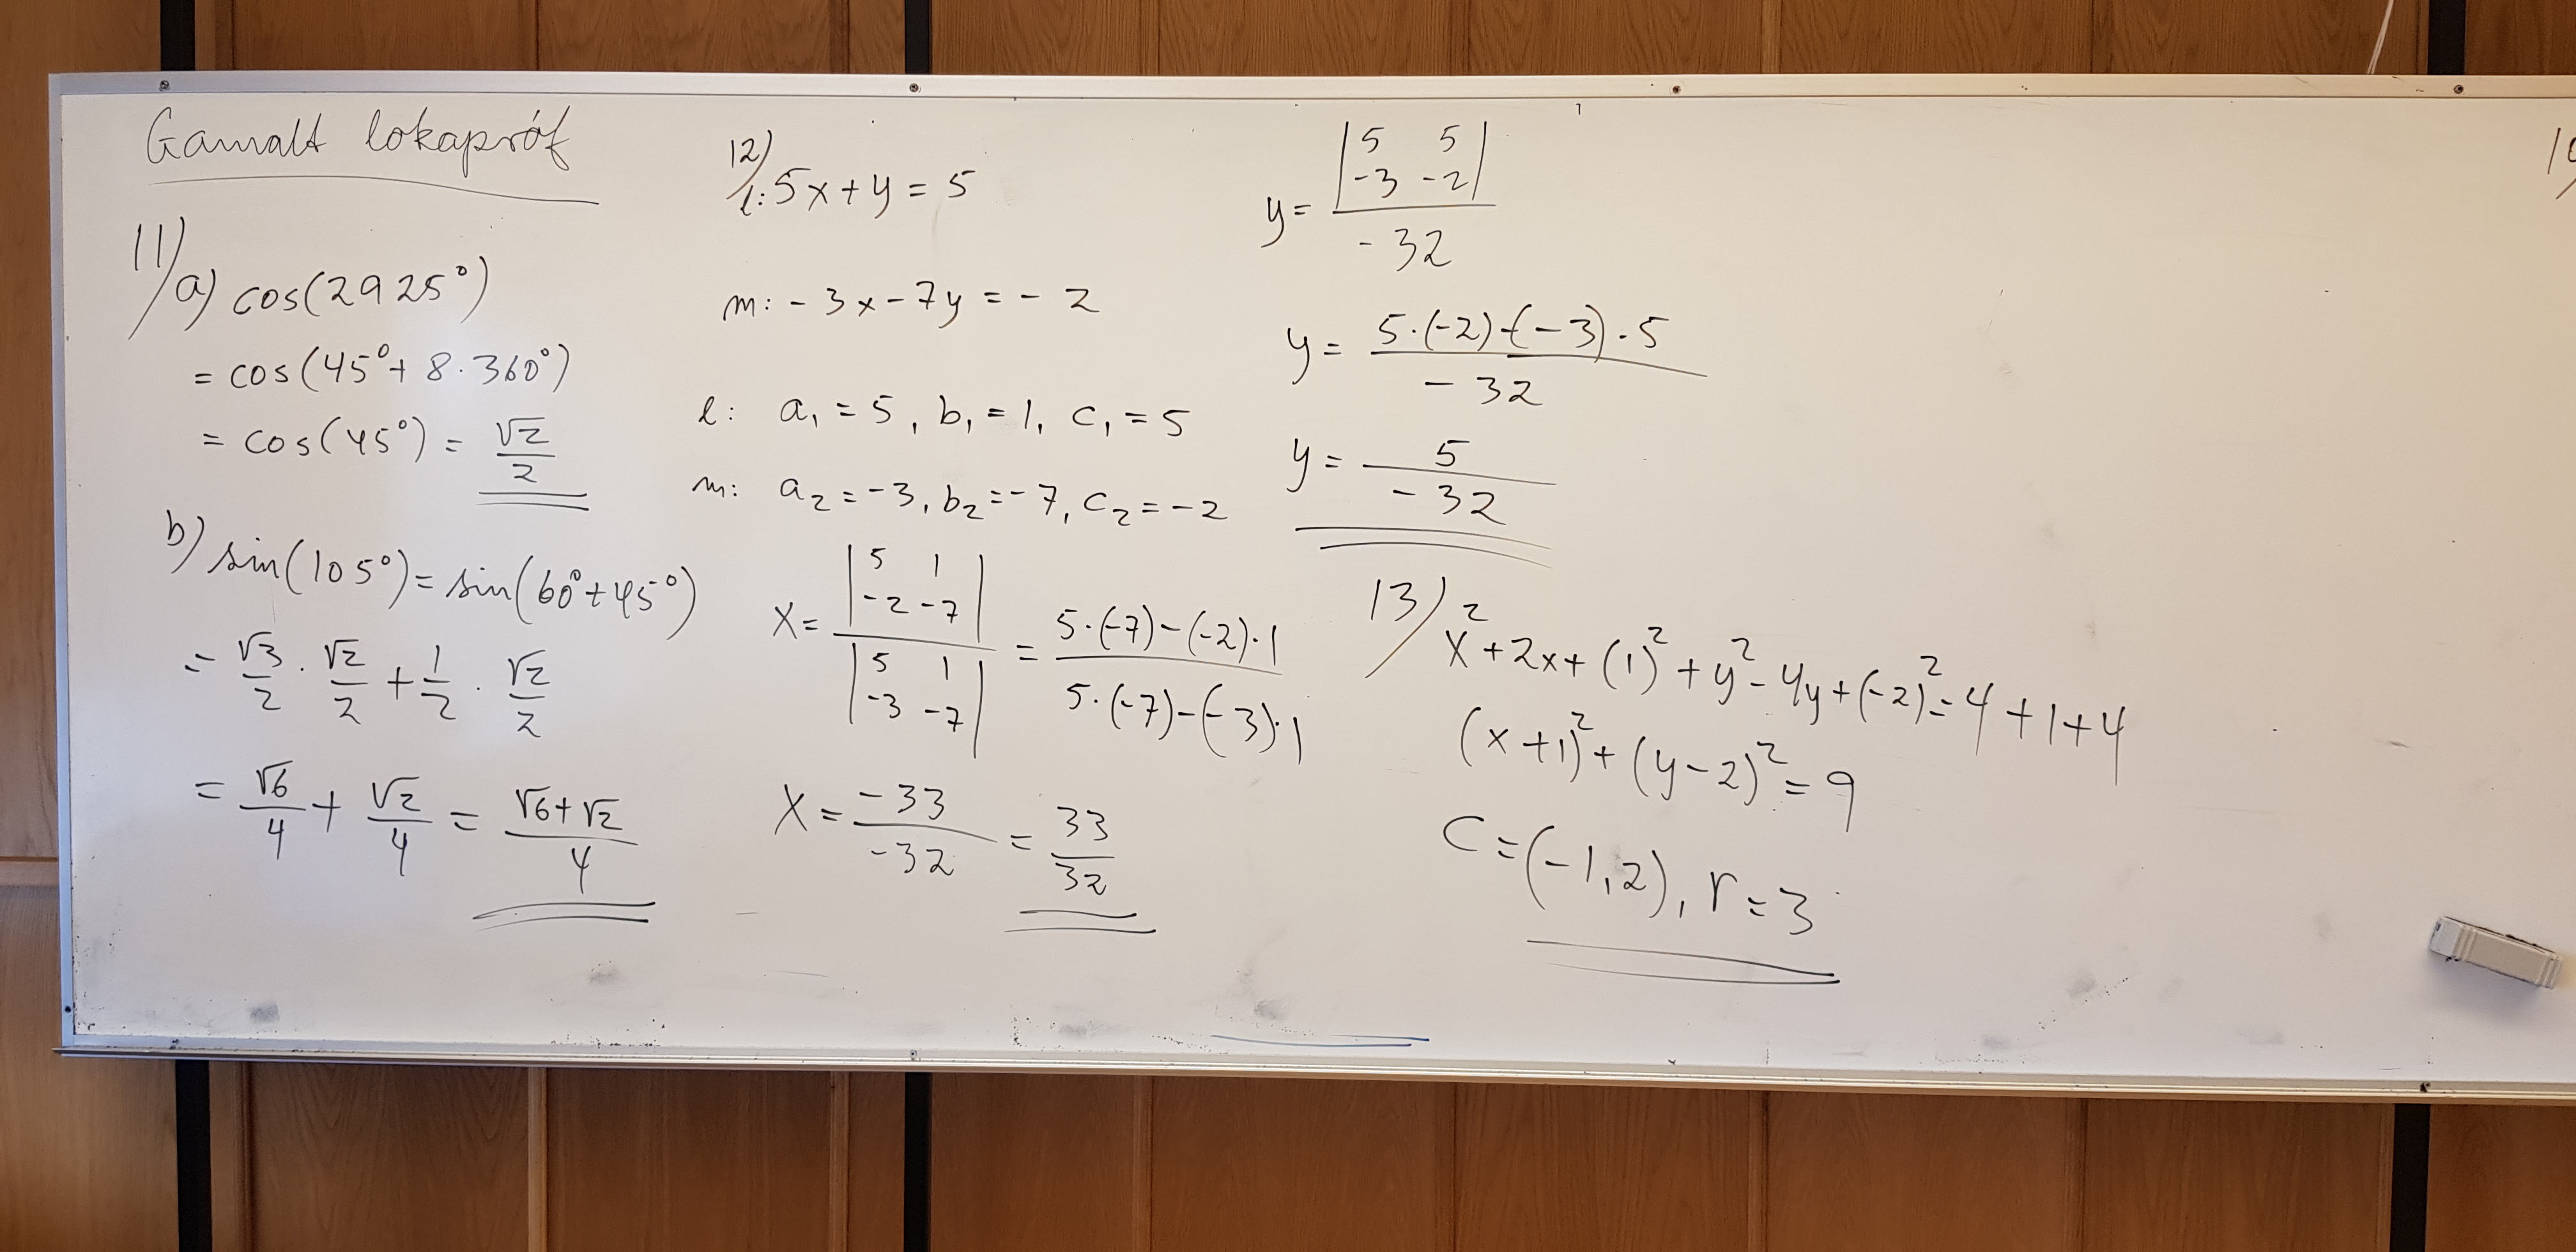 Gamalt lokapróf
11) a) cos(2925°)
= cos(45° + 8·360°)
= cos(45°) = √2/2
b) sin(105°) = sin(60° + 45°)
= √3/2 · √2/2 + 1/2 · √2/2
= √6/4 + √2/4 = (√6+√2)/4
12) l: 5x + y = 5
m: -3x - 7y = -2
l: a₁ = 5, b₁ = 1, c₁ = 5
m: a₂ = -3, b₂ = -7, c₂ = -2
x = |5 1; -2 -7| / |5 1; -3 -7| = (5·(-7)-(-2)·1) / (5·(-7)-(-3)·1)
x = -33/-32 = 33/32
y = |5 5; -3 -2| / -32
y = (5·(-2)-(-3)·5) / -32
y = 5/-32
13) x² + 2x + (1)² + y² - 4y + (-2)² = 4 + 1 + 4
(x+1)² + (y-2)² = 9
C = (-1,2), r = 3